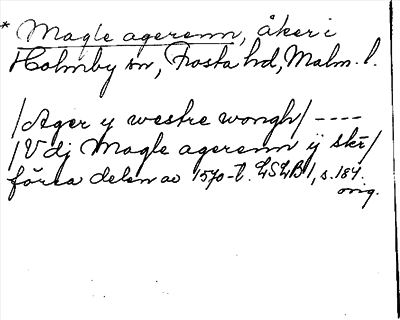 * Magle agerenn, åker i
Holmby sn, Frosta hd, Malm. l.
/Ager y westre wongh/ ----
/V dj Magle agerenn ÿ skr/
förra delen av 1570-t. LSLB 1, s. 184.
orig.